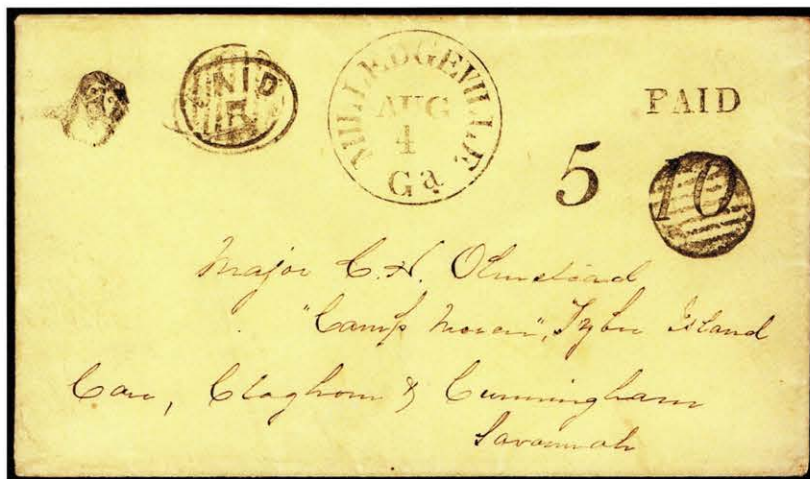 MILLEDGEVILLE
AUG
4
Ga
PAID
5
10
Major C. H. Olmstead
"Camp " Island
Care, Claghorn & Cunningham
Savannah